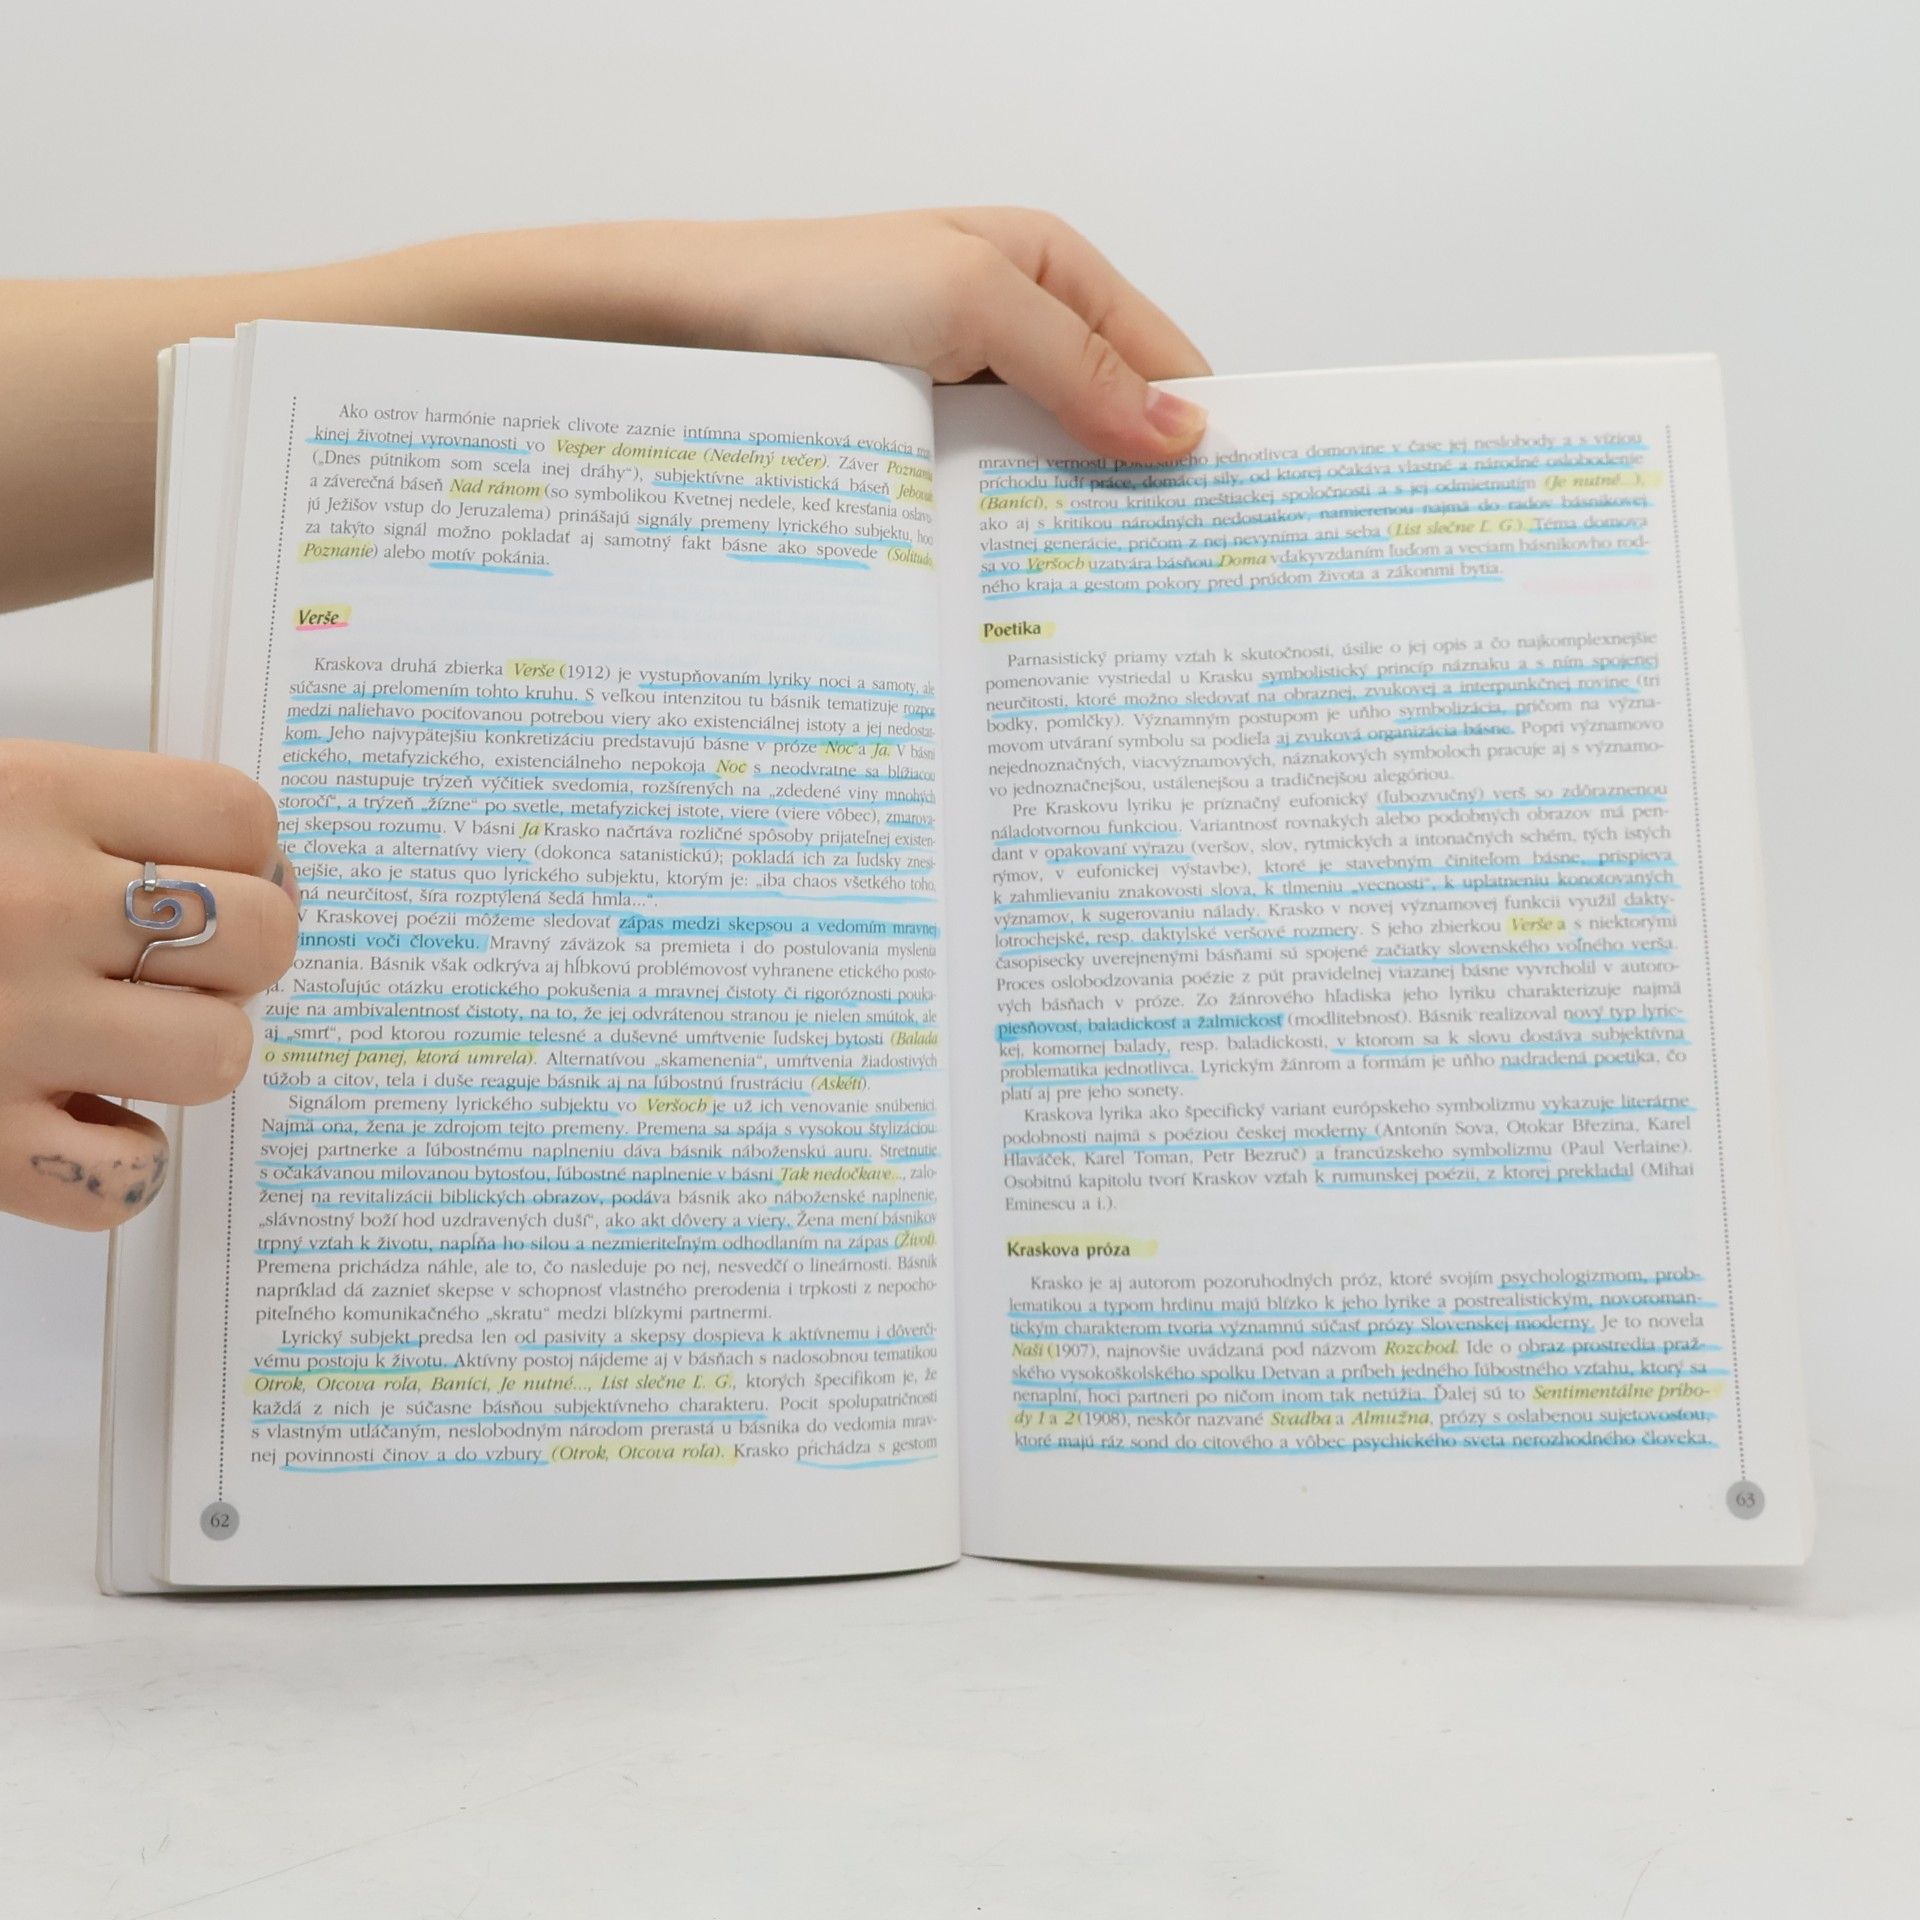 Ako ostrov harmónie napriek clivote zaznie intímna spomienková evokácia
kinej životnej vyrovnanosti vo Vesper dominicae (Nedeľný večer). Záver
(„Dnes pútnikom som scela inej dráhy“), subjektívne aktivistická báseň
a záverečná báseň Nad ránom (so symbolikou Kvetnej nedele, keď kresťania
jú Ježišov vstup do Jeruzalema) prinášajú signály premeny lyrického subjektu,
za takýto signál možno pokladať aj samotný fakt básne ako spovede (Solitudo,
Poznanie) alebo motív pokánia.
Verše
Kraskova druhá zbierka Verše (1912) je vystupňovaním lyriky noci a samoty, ale
súčasne aj prelomením tohto kruhu. S veľkou intenzitou tu básnik tematizuje rozpor
medzi naliehavo pociťovanou potrebou viery ako existenciálnej istoty a jej nedostat-
kom. Jeho najvypätejšiu konkretizáciu predstavujú básne v próze Noc a Ja. V básni
etického, metafyzického, existenciálneho nepokoja Noc s neodvratne sa blížiacou
nocou nastupuje trýzeň výčitiek svedomia, rozšírených na „zdedené viny mnohých
storočí“, a trýzeň „žízne“ po svetle, metafyzickej istote, viere (viere vôbec), zmarova-
nej skepsou rozumu. V básni Ja Krasko načrtáva rozličné spôsoby prijateľnej existen-
cie človeka a alternatívy viery (dokonca satanistickú); pokladá ich za ľudsky znesi-
nejšie, ako je status quo lyrického subjektu, ktorým je: „iba chaos všetkého toho,
ná neurčitosť, šíra rozptýlená šedá hmla...“.
V Kraskovej poézii môžeme sledovať zápas medzi skepsou a vedomím mravnej
innosti voči človeku. Mravný záväzok sa premieta i do postulovania myslenia
oznania. Básnik však odkrýva aj hĺbkovú problémovosť vyhranene etického posto-
ja. Nastoľujúc otázku erotického pokušenia a mravnej čistoty či rigoróznosti pouka-
zuje na ambivalentnosť čistoty, na to, že jej odvrátenou stranou je nielen smútok, ale
aj „smrť“, pod ktorou rozumie telesné a duševné umŕtvenie ľudskej bytosti (Balada
o smutnej panej, ktorá umrela). Alternatívou „skamenenia“, umŕtvenia žiadostivých
túžob a citov, tela i duše reaguje básnik aj na ľúbostnú frustráciu (Askéti).
Signálom premeny lyrického subjektu vo Veršoch je už ich venovanie snúbenici.
Najmä ona, žena je zdrojom tejto premeny. Premena sa spája s vysokou štylizáciou
svojej partnerke a ľúbostnému naplneniu dáva básnik náboženskú auru. Stretnutie
s očakávanou milovanou bytosťou, ľúbostné naplnenie v básni Tak nedočkave..., zalo-
ženej na revitalizácii biblických obrazov, podáva básnik ako náboženské naplnenie,
„slávnostný boží hod uzdravených duší“, ako akt dôvery a viery. Žena mení básnikov
trpný vzťah k životu, napĺňa ho silou a nezmieriteľným odhodlaním na zápas (Život).
Premena prichádza náhle, ale to, čo nasleduje po nej, nesvedčí o lineárnosti. Básnik
napríklad dá zaznieť skepse v schopnosť vlastného prerodenia i trpkosti z nepocho-
piteľného komunikačného „skratu“ medzi blízkymi partnermi.
Lyrický subjekt predsa len od pasivity a skepsy dospieva k aktívnemu i dôverči-
vému postoju k životu. Aktívny postoj nájdeme aj v básňach s nadosobnou tematikou
Otrok, Otcova roľa, Baníci, Je nutné..., List slečne Ľ. G., ktorých špecifikom je, že
každá z nich je súčasne básňou subjektívneho charakteru. Pocit spolupatričnosti
s vlastným utláčaným, neslobodným národom prerastá u básnika do vedomia mrav-
nej povinnosti činov a do vzbury (Otrok, Otcova roľa). Krasko prichádza s gestom
62
mravnej vernosti jednotlivca domovine v čase jej neslobody a s víziou
príchodu ľudí práce, domácej sily, od ktorej očakáva vlastné a národné oslobodenie
(Baníci), s ostrou kritikou meštiackej spoločnosti a s jej odmietnutím (Je nutné...),
ako aj s kritikou národných nedostatkov, namierenou najmä do radov básnikovej
vlastnej generácie, pričom z nej nevyníma ani seba (List slečne Ľ. G.). Téma domova
sa vo Veršoch uzatvára básňou Doma vďakyvzdaním ľuďom a veciam básnikovho rod-
ného kraja a gestom pokory pred prúdom života a zákonmi bytia.
Poetika
Parnasistický priamy vzťah k skutočnosti, úsilie o jej opis a čo najkomplexnejšie
pomenovanie vystriedal u Krasku symbolistický princíp náznaku a s ním spojenej
neurčitosti, ktoré možno sledovať na obraznej, zvukovej a interpunkčnej rovine (tri
bodky, pomlčky). Významným postupom je uňho symbolizácia, pričom na význa-
movom utváraní symbolu sa podieľa aj zvuková organizácia básne. Popri významovo
nejednoznačných, viacvýznamových, náznakových symboloch pracuje aj s významo-
vo jednoznačnejšou, ustálenejšou a tradičnejšou alegóriou.
Pre Kraskovu lyriku je príznačný eufonický (ľubozvučný) verš so zdôraznenou
náladotvornou funkciou. Variantnosť rovnakých alebo podobných obrazov má pen-
dant v opakovaní výrazu (veršov, slov, rytmických a intonačných schém, tých istých
rýmov, v eufonickej výstavbe), ktoré je stavebným činiteľom básne, prispieva
k zahmlievaniu znakovosti slova, k tlmeniu „vecnosti“, k uplatneniu konotovaných
významov, k sugerovaniu nálady. Krasko v novej významovej funkcii využil dakty-
lotrochejské, resp. daktylské veršové rozmery. S jeho zbierkou Verše a s niektorými
časopisecky uverejnenými básňami sú spojené začiatky slovenského voľného verša.
Proces oslobodzovania poézie z pút pravidelnej viazanej básne vyvrcholil v autoro-
vých básňach v próze. Zo žánrového hľadiska jeho lyriku charakterizuje najmä
piesňovosť, baladickosť a žalmickosť (modlitebnosť). Básnik realizoval nový typ lyric-
kej, komornej balady, resp. baladickosti, v ktorom sa k slovu dostáva subjektívna
problematika jednotlivca. Lyrickým žánrom a formám je uňho nadradená poetika, čo
platí aj pre jeho sonety.
Kraskova lyrika ako špecifický variant európskeho symbolizmu vykazuje literárne
podobnosti najmä s poéziou českej moderny (Antonín Sova, Otokar Březina, Karel
Hlaváček, Karel Toman, Petr Bezruč) a francúzskeho symbolizmu (Paul Verlaine).
Osobitnú kapitolu tvorí Kraskov vzťah k rumunskej poézii, z ktorej prekladal (Mihai
Eminescu a i.).
Kraskova próza
Krasko je aj autorom pozoruhodných próz, ktoré svojím psychologizmom, prob-
lematikou a typom hrdinu majú blízko k jeho lyrike a postrealistickým, novoroman-
tickým charakterom tvoria významnú súčasť prózy Slovenskej moderny. Je to novela
Naši (1907), najnovšie uvádzaná pod názvom Rozchod. Ide o obraz prostredia praž-
ského vysokoškolského spolku Detvan a príbeh jedného ľúbostného vzťahu, ktorý sa
nenaplní, hoci partneri po ničom inom tak netúžia. Ďalej sú to Sentimentálne príbo-
dy 1 a 2 (1908), neskôr nazvané Svadba a Almužna, prózy s oslabenou sujetovosťou,
ktoré majú ráz sond do citového a vôbec psychického sveta nerozhodného človeka.
63